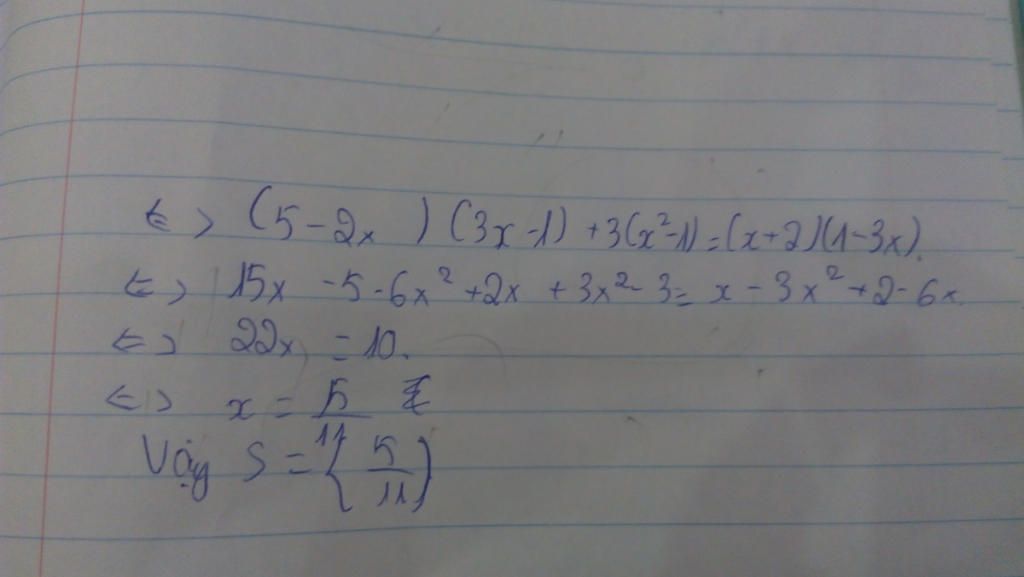 <=> (5-2x)(3x-1)+3(x²-1)=(x+2)(1-3x).
<=> 15x -5-6x²+2x+3x²-3= x-3x²+2-6x.
<=> 22x = 10.
<=> x = 5/11
Vậy S = {5/11}